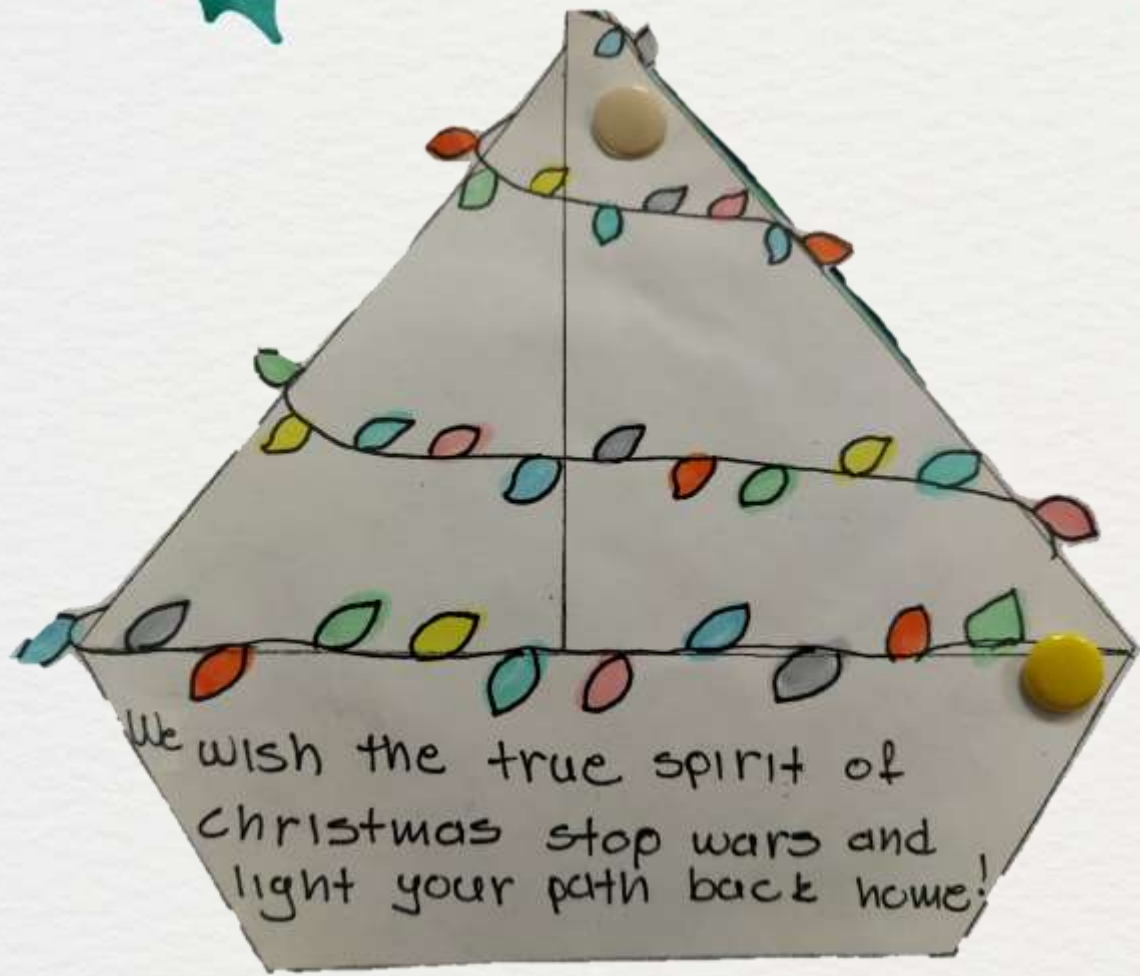 We wish the true spirit of
christmas stop wars and
light your path back home!